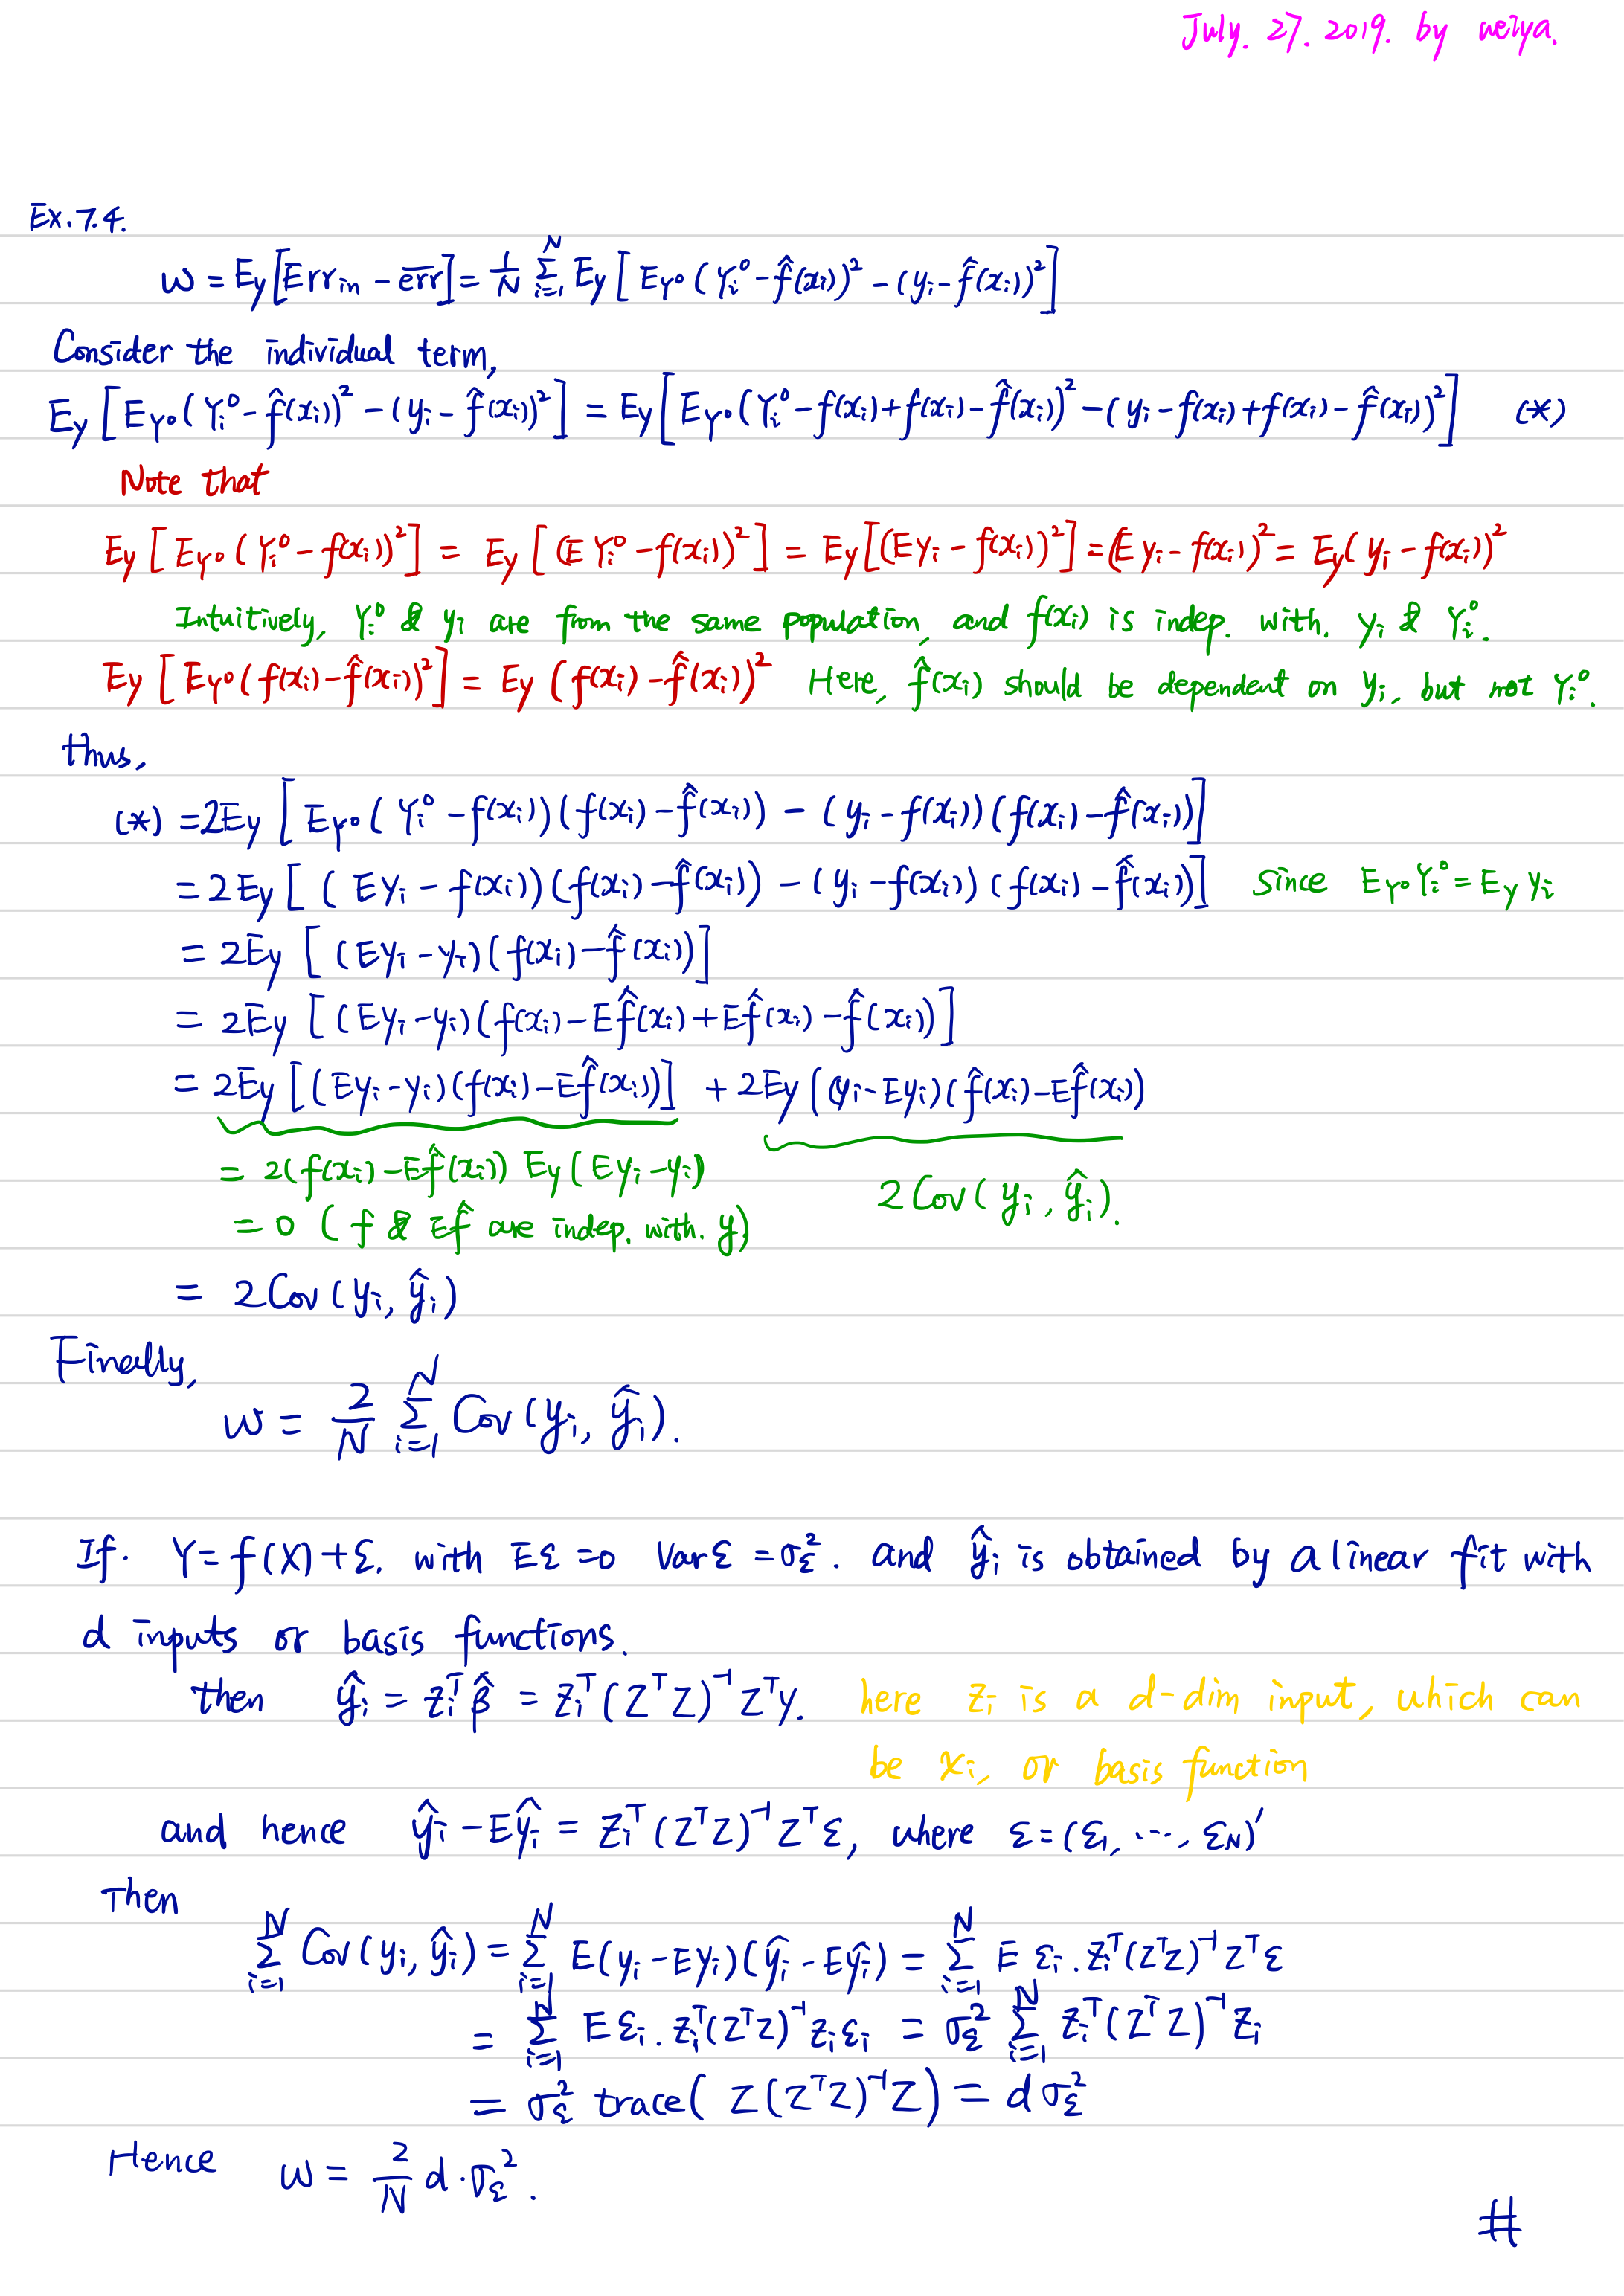 July. 27. 2019. by weiya.
Ex.7.4.
w = E_y[Err_in − \overline{err}] = \frac{1}{N} \sum_{i=1}^{N} E_y[E_{Y⁰}(Y_i⁰ − \hat{f}(x_i))² − (y_i − \hat{f}(x_i))²]
Consider the individual term,
E_y[E_{Y⁰}(Y_i⁰ − \hat{f}(x_i))² − (y_i − \hat{f}(x_i))²] = E_y[E_{Y⁰}(Y_i⁰ − f(x_i) + f(x_i) − \hat{f}(x_i))² − (y_i − f(x_i) + f(x_i) − \hat{f}(x_i))²] (*)
Note that
E_y[E_{Y⁰}(Y_i⁰ − f(x_i))²] = E_y[(E Y_i⁰ − f(x_i))²] = E_y[(E y_i − f(x_i))²] = (E y_i − f(x_i))² = E_y(y_i − f(x_i))²
Intuitively, Y_i⁰ & y_i are from the same population, and f(x_i) is indep. with. y_i & Y_i⁰.
E_y[E_{Y⁰}(f(x_i) − \hat{f}(x_i))²] = E_y(f(x_i) − \hat{f}(x_i))² Here, \hat{f}(x_i) should be dependent on y_i, but not Y_i⁰.
thus,
(*) = 2E_y[E_{Y⁰}(Y_i⁰ − f(x_i))(f(x_i) − \hat{f}(x_i)) − (y_i − f(x_i))(f(x_i) − \hat{f}(x_i))]
= 2E_y[(E y_i − f(x_i))(f(x_i) − \hat{f}(x_i)) − (y_i − f(x_i))(f(x_i) − \hat{f}(x_i))] since E_{Y⁰}Y_i⁰ = E_y y_i
= 2E_y[(E y_i − y_i)(f(x_i) − \hat{f}(x_i))]
= 2E_y[(E y_i − y_i)(f(x_i) − E\hat{f}(x_i) + E\hat{f}(x_i) − \hat{f}(x_i))]
= 2E_y[(E y_i − y_i)(f(x_i) − E\hat{f}(x_i))] + 2E_y((y_i − E y_i)(\hat{f}(x_i) − E\hat{f}(x_i))
= 2(f(x_i) − E\hat{f}(x_i)) E_y(E y_i − y_i) 2Cov(y_i, \hat{y}_i).
= 0 (f & E\hat{f} are indep. with. y)
= 2Cov(y_i, \hat{y}_i)
Finally,
w = \frac{2}{N} \sum_{i=1}^{N} Cov(y_i, \hat{y}_i).
If. Y = f(X) + ε. with Eε = 0 Var ε = σ_ε². and \hat{y}_i is obtained by a linear fit with
d inputs or basis functions.
then \hat{y}_i = z_i^T \hat{β} = z_i^T(Z^T Z)^{-1}Z^T y. here z_i is a d-dim input, which can
be x_i, or basis function
and hence \hat{y}_i − E\hat{y}_i = z_i^T(Z^T Z)^{-1}Z^T ε, where ε = (ε_1, ···, ε_N)′
Then
\sum_{i=1}^{N} Cov(y_i, \hat{y}_i) = \sum_{i=1}^{N} E(y_i − E y_i)(\hat{y}_i − E\hat{y}_i) = \sum_{i=1}^{N} E ε_i · z_i^T(Z^T Z)^{-1}Z^T ε
= \sum_{i=1}^{N} E ε_i · z_i^T(Z^T Z)^{-1}z_i ε_i = σ_ε² \sum_{i=1}^{N} z_i^T(Z^T Z)^{-1}z_i
= σ_ε² trace(Z(Z^T Z)^{-1}Z) = d σ_ε²
Hence w = \frac{2}{N} d · σ_ε².
#